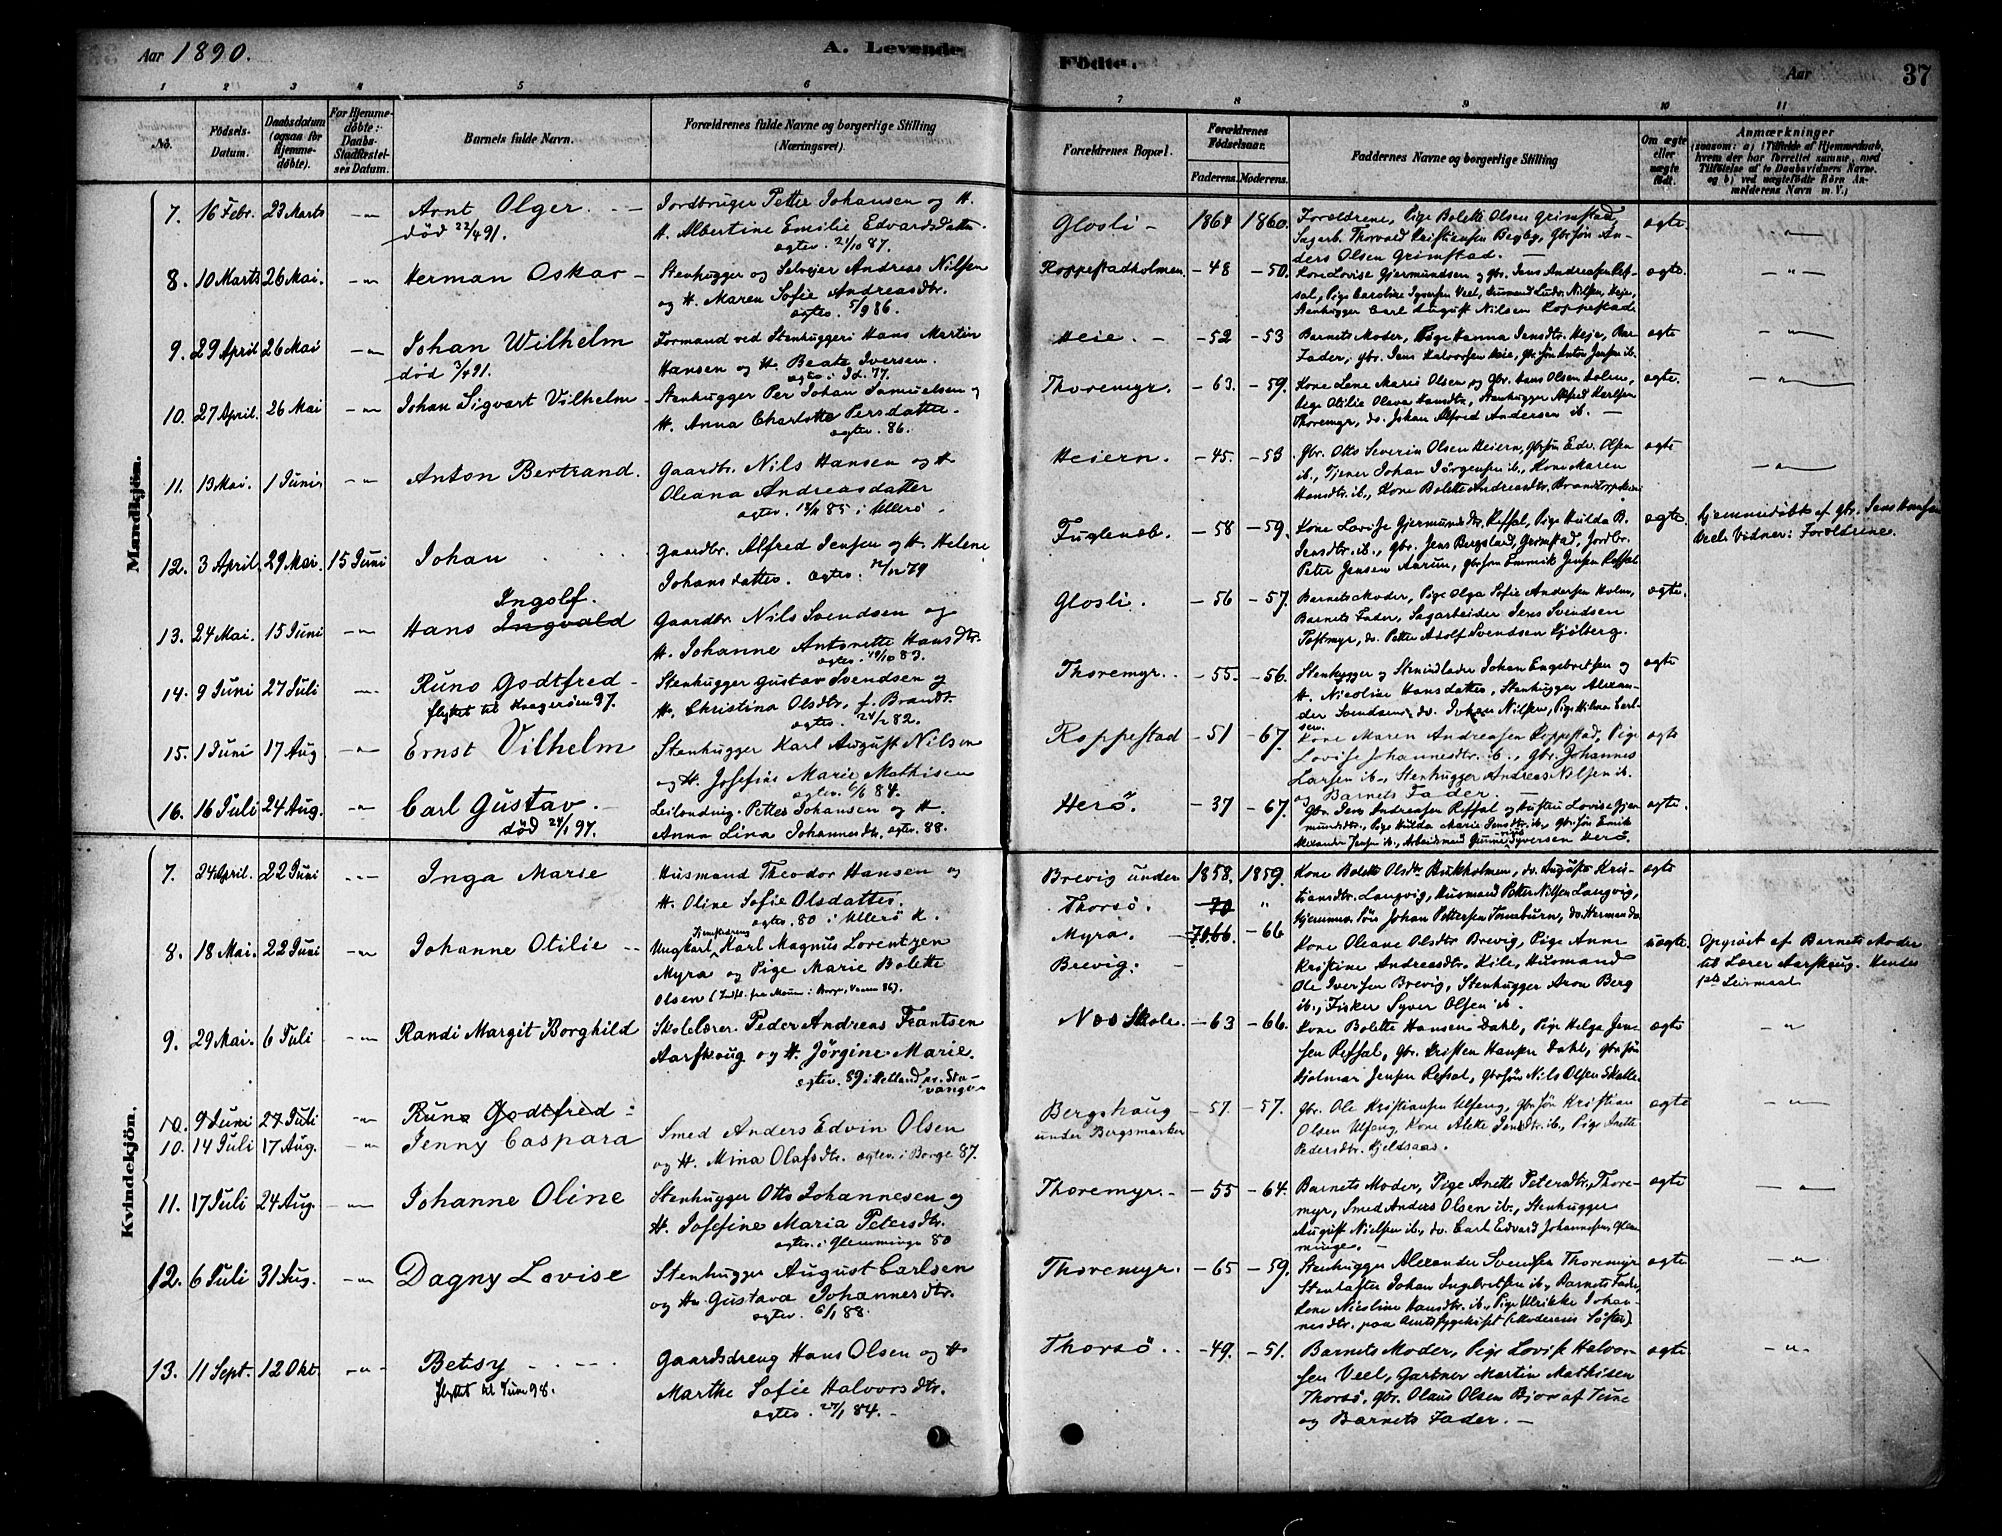 Aar 1890.
A. Levende
Fødte.
Aar
37
1 2 3 4 5 6 7 8 9 10 11
No.
Fødsels-Datum.
Daabsdatum (ogsaa for Hjemmedøbte).
For Hjemmedøbte: Daabs-Stadfæstelses Datum.
Barnets fulde Navn.
Forældrenes fulde Navne og borgerlige Stilling (Næringsvei).
Forældrenes Bopæl.
Forældrenes Fødselsaar.
Faderens. Moderens.
Faddernes Navne og borgerlige Stilling
Om ægte eller uægte født.
Anmærkninger
Mandkjøn.
7. 16 Febr. 23 Marts -"- Arnt Olger. Jordbruger Petter Johansen og H. Glosli - 1864 1860. Forældrene, Pige Bolette Olsen Grimstad, ægte.
død 22/4 91. H. Albertine Emilie Edvardsdatter. Sagarb. Thorvald Kristiansen Begby, Gbr. søn An-
ægtev. 21/10 87. ders Olsen Grimstad.
8. 10 Marts 26 Mai. -"- Herman Oskar - Stenhugger og Selveier Andreas Nilsen Roppestadholmen. - 48 - 50. Kone Lovise Gjermundsen og Gbr. Jens Andreasen Ref- ægte. -"-
og H. Maren Sofie Andreasdtr. sal, Pige Caroline Syversen Veel,
ægtev. 5/9 86. Stenhugger Carl August Nilsen Roppestad
9. 29 April 26 Mai -"- Johan Wilhelm Formand ved Stenhuggeri Hans Martin Heie. - - 52 - 53 Barnets Moder, Pige Hanna Jensdtr. Heje, Bar. ægte -"-
død 3/4 91. Hansen og H. Beate Iversen. Fader, Gbr. Jens Halvorsen Heie, Gbr. søn Anton Jensen ib.
ægtev. i Id. 77.
10. 27 April. 26 Mai -"- Johan Sigvart Vilhelm - Stenhugger Per Johan Samuelsen og Thoremyr. - 63. - 59. Kone Lene Marie Olsen og Gbr. Hans Olsen Holm, ægte. -"-
H. Anna Charlotte Persdatter. Pige Otilie Olava Hansdtr., Stenhugger Alfred Karlsen
ægtev. 86. Thoremyr, do. Johan Alfred Andersen ib.
11. 13 Mai. 1 Juni -"- Anton Bertrand. Gaardbr. Nils Hansen og H. Heiern. - 45. - 53 Gbr. Otto Severin Olsen Heiern, Gbr. søn Edv. Olsen ægte -"-
Oleana Andreasdatter ib., Tjener Johan Jörgensen ib., Kone Maren
ægtev. 85 i Ullerö. Hansdtr. ib., Kone Bolette Andreasdtr.
12. 3 April. 29 Mai. 15 Juni Johan Gaardbr. Alfred Jensen og H. Helene Fuglenæb. - 58 - 59. Kone Lovise Gjermundsdtr. Refsal, Pige Hulda B. ægte. Hjemmedøbt af Gbr. Jens Hansen
Johansdatter. ægtev. 79 Jensdtr. ib., Gbr. Jens Bergstad, Grimstad, Jordbr. Veel. Vidner: Forældrene.
Peter Jensen Aarum, Gbr. søn Emmerik Jensen Refsal
Ingolf.
13. 24 Mai. 15 Juni -"- Hans Ingvald Gaardbr. Nils Svendsen og Glosli. - 56 - 57. Barnets Moder, Pige Olga Sofie Andersen Holm, ægte.
H. Johanne Antonette Hansdtr. Barnets Fader, Sagarbeider Jens Svendsen
ægtev. 19/10 83. Postmyr, do. Petter Adolf Svendsen Kjölberg.
14. 9 Juni 27 Juli -"- Runo Godtfred - Stenhugger Gustav Svendsen og Thoremyr. - 55. - 56. Stenhugger og Stenindlader Johan Engebretsen og ægte
flyttet til Kragerøen 97. H. Christina Olsdtr. f. Brandt. H. Nicoline Hansdatter, Stenhugger Alexan-
ægtev. 24/2 82. der Svendsen, do. Johan Nilsen, Pige Hilma Carl-
sen.
15. 1 Juni 17 Aug -"- Ernst Vilhelm Stenhugger Karl August Nilsen Roppestad - 51 - 67. Kone Maren Andreasen Roppestad, Pige ægte
og H. Josefine Marie Mathisen Lovise Johannesdtr. ib., Gbr. Johannes
ægtev. 6/6 84. Larsen ib., Stenhugger Andreas Nilsen ib.
og Barnets Fader.
16. 16 Juli 24 Aug. -"- Carl Gustav. Leilænding Petter Johansen og H. Herö. - 37 - 67. Gbr. Jens Andreasen Refsal og Hustru Lovise Gjer- ægte.
død 24/1 97. Anna Lina Johannesdtr. ægtev. 88. mundsdtr., Pige Hulda Marie Jensdtr. ib., Gbr. søn Emrik
Alexander Jensen ib., Arbeidsmand Syversen Herö.
Kvindekjøn.
7. 24 April. 22 Juni -"- Inga Marie Husmand Theodor Hansen og Brevig under 1858. 1859. Kone Bolette Olsdtr. Bukholmen, do. Auguste Kris- ægte
H. Oline Sofie Olsdatter. Thorsö. 70 " tiansdtr. Langvig, Husmand Petter Nilsen Langvig,
ægtev. 80 i Ullerö K.
8. 18 Mai. 22 Juni -"- Johanne Otilie Ungkarl Karl Magnus Lorentzen Myra. - 66. - 66 Kone Oleane Olsdtr. Brevig, Pige Anne uægte. Opgivet af Barnets Moder
Myra og Pige Marie Bolette Brevig. - Kristine Andreasdtr. Kile, Husmand til Lærer Aarskoug. Hendes
Olsen Ole Iversen Brevig, Stenhugger Aron Berg 1ste Leiermaal
ib., Fisker Syver Olsen ib.
9. 29 Mai. 6 Juli -"- Randi Margit Borghild Skolelærer Peder Andreas Frantsen Næs Skole. - 63 - 66. Kone Bolette Hansen Dahl, Pige Helga Jen- ægte -"-
Aarskoug og H. Jörgine Marie. sen Refsal, Gbr. Kristen Hansen Dahl, Gbr. søn
ægtev. 89 i Hetland pr. Sta- Hjalmar Jensen Refsal, Gbr. søn Nils Olsen Skolle.
vanger
10. 9 Juni 27 Juli -"- Runo Godtfred :
10. 14 Juli 17 Aug. -"- Jenny Caspara Smed Anders Edvin Olsen Bergshaug - 57. - 57. Gbr. Ole Kristiansen Ulfeng, Gbr. søn Kristian ægte -"-
og H. Mina Olafsdtr. ægtev. i Borge 87. under Bergsmarken Olsen Ulfeng, Kone Alette Jensdtr. ib., Pige Anette
Pedersdtr. Kjeldsaas.
11. 17 Juli 24 Aug. -"- Johanne Oline Stenhugger Otto Johannesen og Thoremyr. - 55 - 64. Barnets Moder, Pige Anette Petersdtr. Thore- ægte -"-
H. Josefine Maria Petersdtr. myr, Smed Anders Olsen ib., Stenhugger
ægtev. i Glemminge 80 August Nielsen ib., do. Carl Edvard Johannesen, Glem-
minge.
12. 6 Juli 31 Aug. -"- Dagny Lovise Stenhugger August Carlsen Thoremyr. - 65 - 59. Stenhugger Alexander Svensen Thoremyr ægte -"-
og H. Gustava Johannesdtr. Johan Engebretsen ib., Barnets Fader,
ægtev. 6/1 88. Kone Nicoline Hansdtr. ib., Pige Ulrikke Johan-
nesdtr. paa Amtssygehuset (Moderens Søster)
13. 11 Sept. 12 Okt. -"- Betsy Gaardsdreng Hans Olsen og H. Thorsö. - 49. - 51. Barnets Moder, Pige Lovise Halvor- ægte -"-
flyttet til Tune 98. Marthe Sofie Halvorsdtr. sen Veel, Gartner Martin Mathisen
ægtev. 27/1 84. Thorsö, Gbr. Olaus Olsen Bjor af Tune
og Barnets Fader.